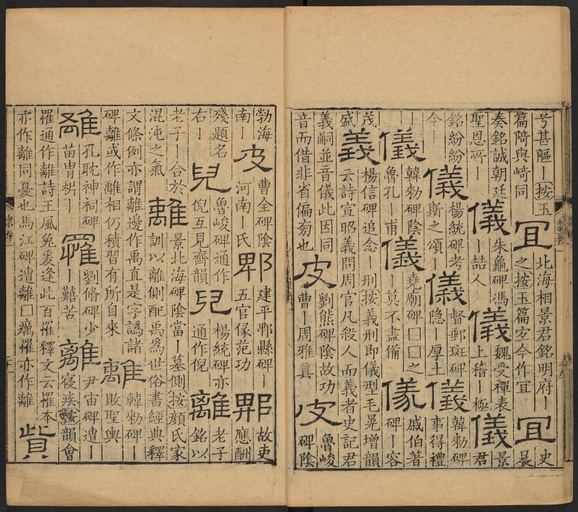 兮甚嘔｜按玉
篇隋與崎同
宜
北海相景君銘明府｜
之按玉篇宜今作宜
宜
史
晨
奏銘誠朝廷
聖恩所｜
儀
朱龜碑馮
｜喆人
儀
魏受禪表
上稽｜極
儀
景
君
銘紛紛
令｜
儀
楊統碑考
斯之頌｜
儀
督郵斑碑
隐｜厚土
儀
韓勑碑
事得禮
儀
韓勑碑陰
魯孔｜甫
儀
堯廟碑□□之
莫不盡備
儀
戚伯著
碑｜容
茂
盛
義
楊信碑追念｜刑按義刑即儀型毛晃增韻
云詩宣昭義問周官凡殺人而義者史記君
義嗣並音儀此因同
音而借非省偏旁也
皮
劉熊碑陰故功
曹｜周雅真
皮
魯峻
碑陰
勃海
南｜
皮
曹全碑陰
河南｜氏
郫
建平郫縣碑｜
五官掾范功
郫
故吏
應酬
殘題名
右｜
兒
魯峻碑通作
倪互見齊韻
兒
楊統碑亦
通作倪
離
老子
銘以
老子｜合於
混沌之氣
離
景北海碑陰當｜墓側按顏氏家
訓以離側配禹為世俗書經典釋
文條例亦謂離邊作禹直是字譌諸
碑離或作離相仍積習有所自來
離
韓勑碑｜
敗聖輿
離
孔耽神祠碑
苗胄枿｜
罹
劉脩碑少
｜囏苦
離
尹宙碑遭｜
寢疾按韻會
罹通作離詩王風兔爰逢此百罹釋文云罹本
亦作離同憂也馬江碑遭離□癘罹亦作離
貲